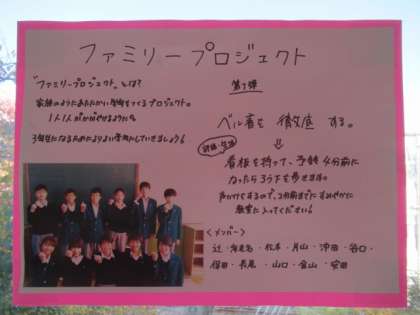 ファミリープロジェクト
"ファミリープロジェクト"とは?
家族のようにあたたかい学年をつくるプロジェクト。
1人1人がかがやけるように
3年生になるためによりよい学年にしていきましょう!
第1弾
ベル着を 徹底 する。
看板を持って、予鈴 4分前に
なったら ろう下を歩きます。
声かけするので、2分前までにすみやかに
教室に入ってください!
<メンバー>
辻・海老名・松本・片山・沖田・谷口・
保田・長尾・山口・倉山・安田